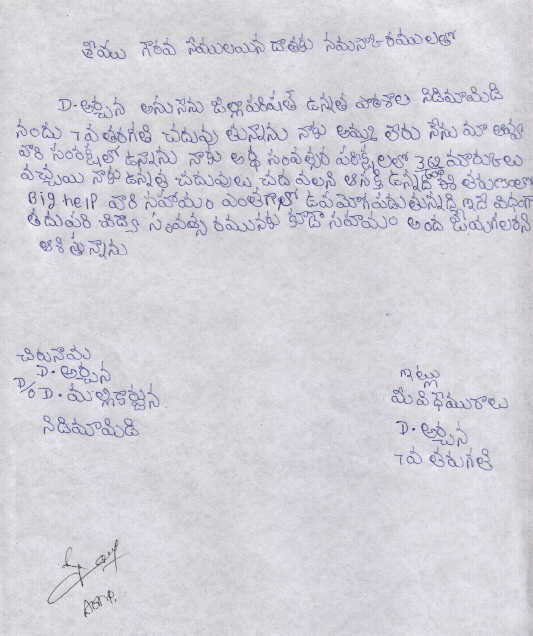 శ్రేయు గౌరవ నీయులయిన దాతకు నమస్కారములతో
D. అర్చన అనునేను జిల్లాపరిషత్ ఉన్నత పాఠశాల నిడిమామిడి
నందు 7వ తరగతి చదువు తున్నాను నాకు అమ్మ లేరు నేను మా అవ్వ
వారి సంరక్షలో ఉన్నాను నాకు అర్ధ సంవత్సర పరీక్షలలో మార్కులు
వచ్చేయి నాకు ఉన్నత చదువులు చద వలని ఆసక్తి ఉన్నది ఈ తరుణంలో
Big help వారి సహాయం ఎంతగానో ఉపయోగపడుతున్నది ఇదే విధంగా
తదుపరి విద్యా సంవత్స రమునకు కూడా సహాయం అంద జేయగలరని
ఆశి తున్నాను
చిరునామ
D. అర్చన
D/o D. మల్లికార్జున
నిడిమామిడి
ఇట్లు
మీ విధేయురాలు
D. అర్చన
7వ తరగతి